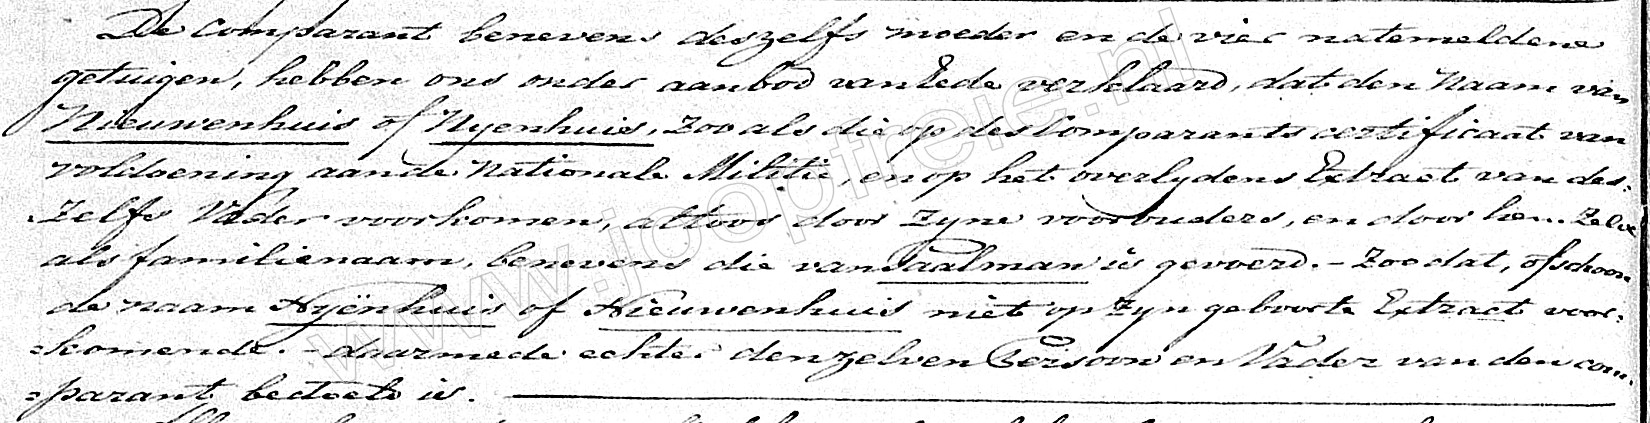 De comparant benevens deszelfs moeder en de vier natemeldene
getuigen, hebben ons onder aanbod van Eede verklaard, dat den Naam van
Nieuwenhuis of Nyenhuis, zoo als die op des Comparants certificaat van
voldoening aan de Nationale Militie, en op het overlydens Extract van des-
zelfs Vader voorkomen, altoos door zyne voorouders, en door hen zelve
als familienaam, benevens die van Saalman is gevoerd. - Zoo dat, ofschoon
de naam Nyënhuis of Nieuwenhuis niet op zyn geboorte Extract voor-
=komende. - daarmede echter denzelven Persoon en Vader van den com-
=parant bedoeld is.
www.joopfreie.nl